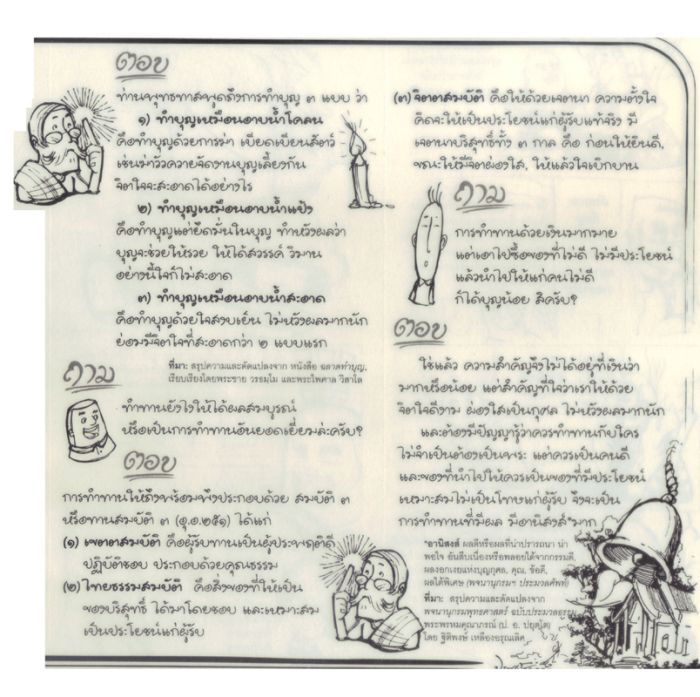 ตอบ
ท่านพุทธทาสพูดถึงการทำบุญ ๓ แบบ ว่า
๑) ทำบุญเหมือนอาบน้ำโคลน
คือทำบุญด้วยการฆ่า เบียดเบียนสัตว์
เช่นฆ่าวัวควายจัดงานบุญเลี้ยงกัน
จิตใจจะสะอาดได้อย่างไร
๒) ทำบุญเหมือนอาบน้ำแป้ง
คือทำบุญแต่ยึดมั่นในบุญ ทำหวังผลว่า
บุญจะช่วยให้รวย ให้ได้สวรรค์ วิมาน
อย่างนี้ใจก็ไม่สะอาด
๓) ทำบุญเหมือนอาบน้ำสะอาด
คือทำบุญด้วยใจสงบเย็น ไม่หวังผลมากนัก
ย่อมมีจิตใจที่สะอาดกว่า ๒ แบบแรก
ที่มา: สรุปความและดัดแปลงจาก หนังสือ ฉลาดทำบุญ.
เรียบเรียงโดยพระชาย วรธมฺโม และพระไพศาล วิสาโล
ถาม
ทำทานยังไงให้ได้ผลสมบูรณ์
หรือเป็นการทำทานอันยอดเยี่ยมล่ะครับ?
ตอบ
การทำทานให้ถึงพร้อมพึงประกอบด้วย สมบัติ ๓
หรือทานสมบัติ ๓ (อุ.อ.๒๕๑) ได้แก่
(๑) เขตตสมบัติ คือผู้รับทานเป็นผู้ประพฤติดี
ปฏิบัติชอบ ประกอบด้วยคุณธรรม
(๒) ไทยธรรมสมบัติ คือสิ่งของที่ให้เป็น
ของบริสุทธิ์ ได้มาโดยชอบ และเหมาะสม
เป็นประโยชน์แก่ผู้รับ
(๓) จิตตสมบัติ คือให้ด้วยเจตนา ความตั้งใจ
คิดจะให้เป็นประโยชน์แก่ผู้รับแท้จริง มี
เจตนาบริสุทธิ์ทั้ง ๓ กาล คือ ก่อนให้ยินดี,
ขณะให้มีจิตผ่องใส, ให้แล้วใจเบิกบาน
ถาม
การทำทานด้วยเงินมากมาย
แต่เอาไปซื้อของที่ไม่ดี ไม่มีประโยชน์
แล้วนำไปให้แก่คนไม่ดี
ก็ได้บุญน้อย สิครับ?
ตอบ
ใช่แล้ว ความสำคัญจึงไม่ได้อยู่ที่เงินว่า
มากหรือน้อย แต่สำคัญที่ใจว่าเราให้ด้วย
จิตใจดีงาม ผ่องใสเป็นกุศล ไม่หวังผลมากนัก
และต้องมีปัญญารู้ว่าควรทำทานกับใคร
ไม่จำเป็นต้องเป็นพระ แต่ควรเป็นคนดี
และของที่นำไปให้ควรเป็นของที่มีประโยชน์
เหมาะสมไม่เป็นโทษแก่ผู้รับ จึงจะเป็น
การทำทานที่มีผล มีอานิสงส์*มาก
*อานิสงส์ ผลดีหรือผลที่น่าปรารถนา น่า
พอใจ อันสืบเนื่องหรือพลอยได้จากกรรมดี
ผลงอกเงยแห่งบุญกุศล, คุณ, ข้อดี,
ผลได้พิเศษ (พจนานุกรมฯ ประมวลศัพท์
ที่มา: สรุปความและดัดแปลงจาก
พจนานุกรมพุทธศาสตร์ ฉบับประมวลธรรม
พระพรหมคุณาภรณ์ (ป. อ. ปยุตฺโต)
โดย ฐิติพงษ์ เหลืองอรุณเลิศ